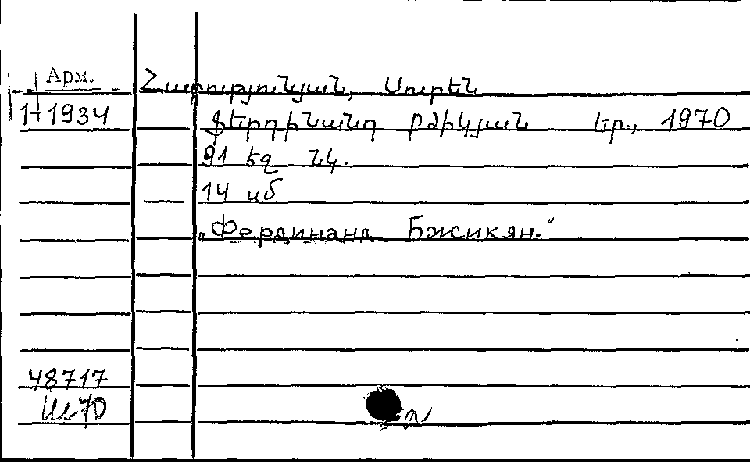 Арм. Հարությունյան, Սուրեն
1-1934 Ֆերդինանդ Բժիկյան Եր., 1970
91 եզ նկ.
14 սմ
„Фердинанд Бжикян.“
48717
70